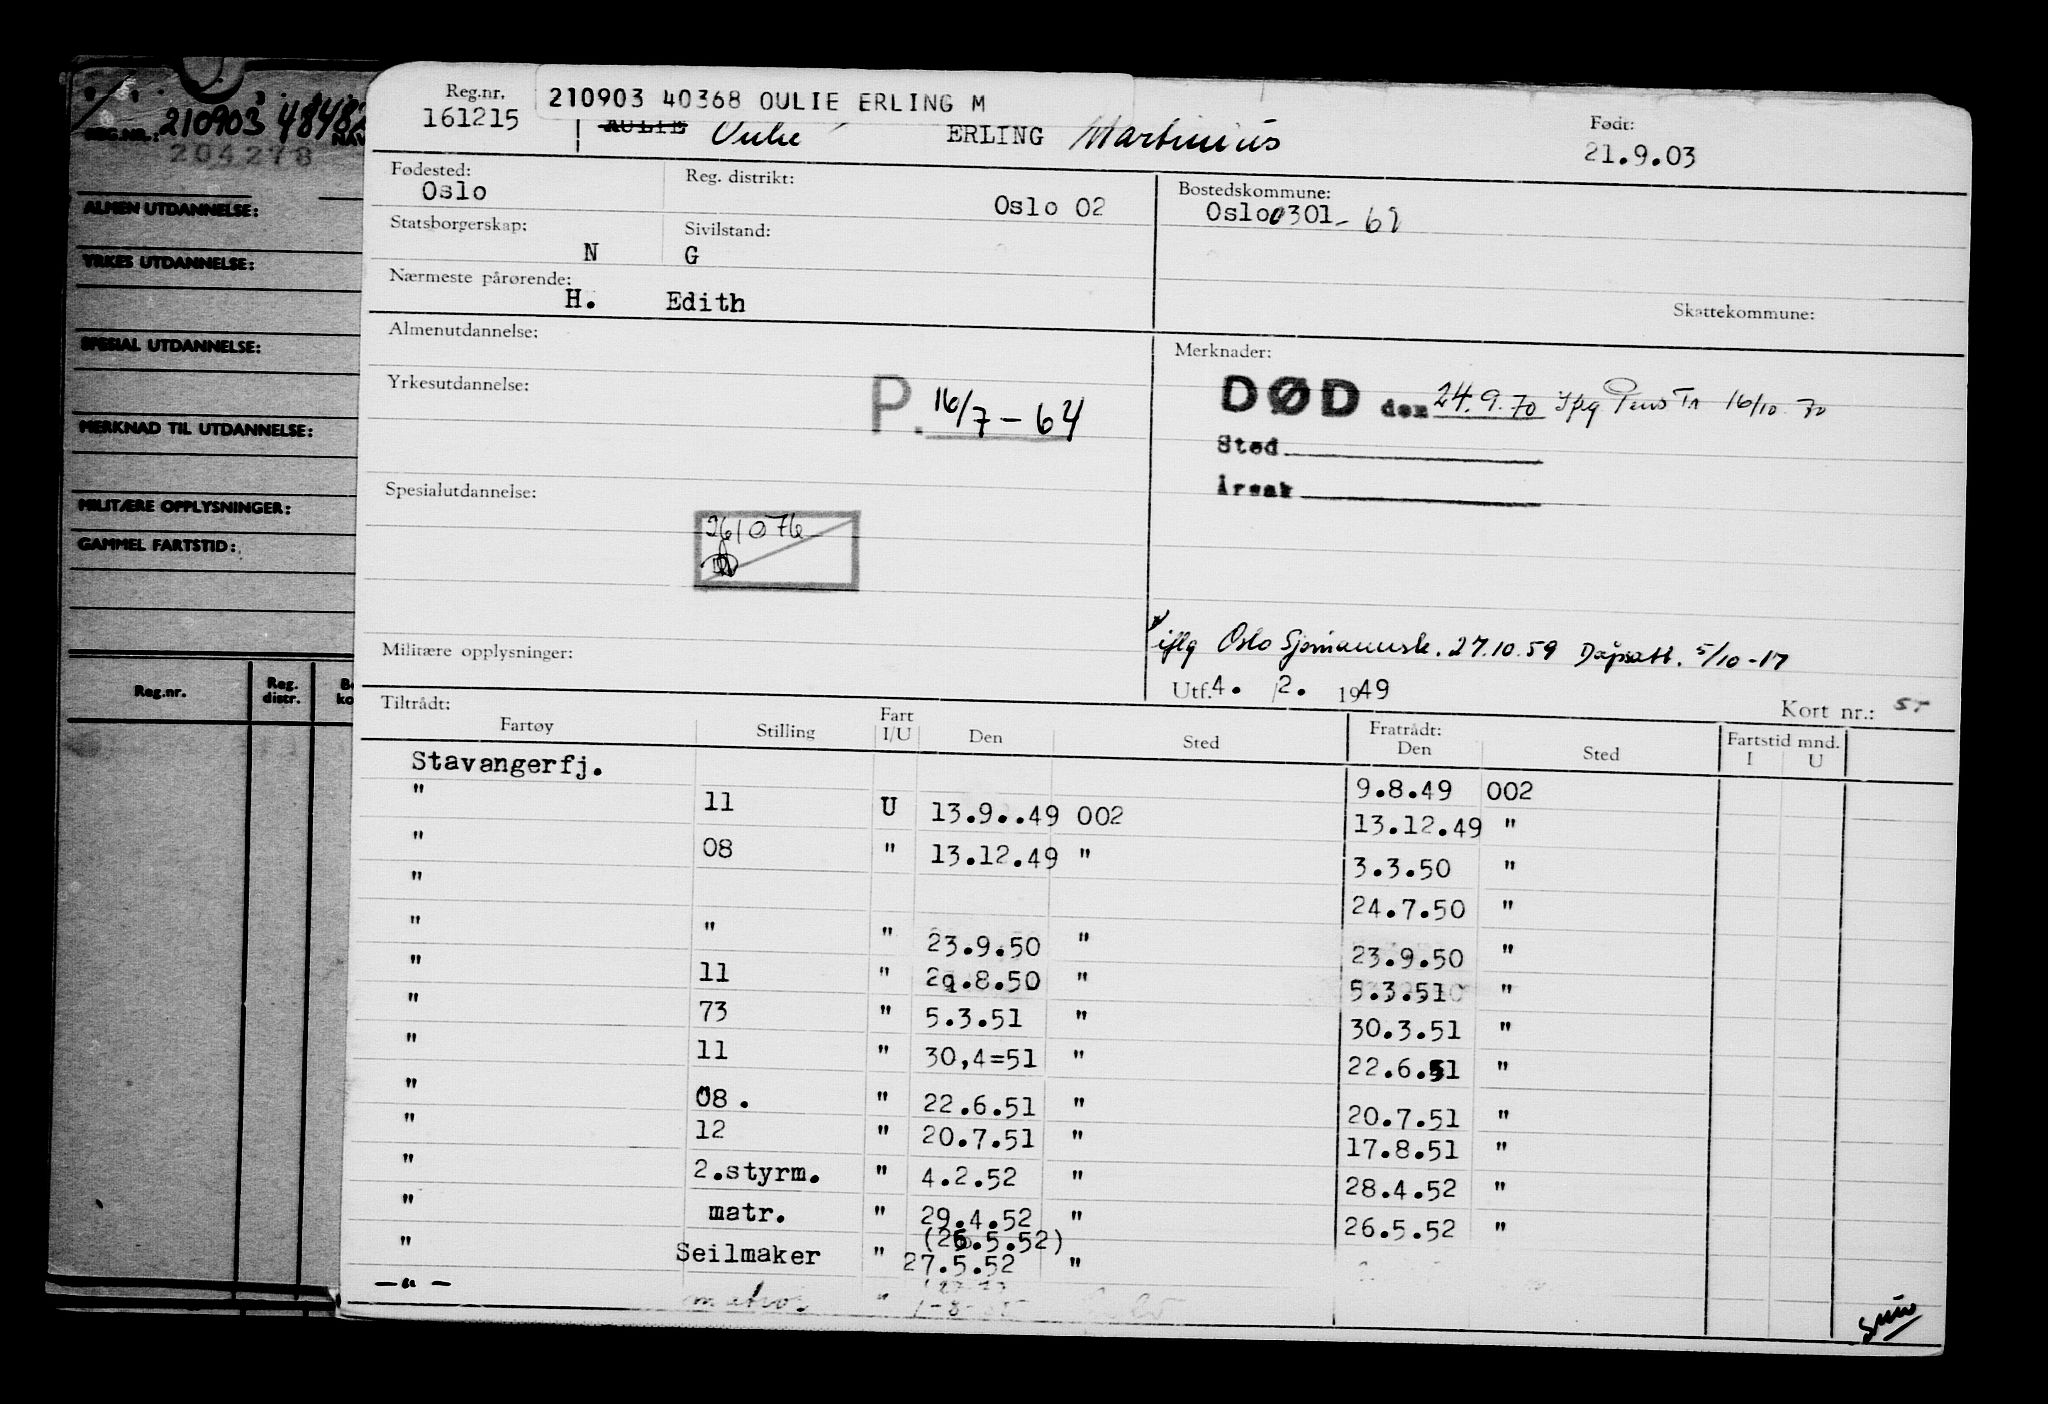 REG.NR.: 210903 48482 NAV
204278
ALMEN UTDANNELSE:
YRKES UTDANNELSE:
SPESIAL UTDANNELSE:
MERKNAD TIL UTDANNELSE:
MILITÆRE OPPLYSNINGER:
GAMMEL FARTSTID:
Reg.nr. Reg. distr.
Reg.nr. 210903 40368 OULIE ERLING M
161215 AULIE Oulie ERLING Martinius
Født:
21.9.03
Fødested: Reg. distrikt: Bostedskommune:
Oslo Oslo 02 Oslo 0301-69
Statsborgerskap: Sivilstand:
N G
Nærmeste pårørende:
H. Edith
Skattekommune:
Almenutdannelse: Merknader:
Yrkesutdannelse: P. 16/7-64
DØD den 24.9.70 Ifg Pens Tr 16/10 70
Sted
Årsak
Spesialutdannelse:
261076
iflg Oslo Sjømannsk. 27.10.59 Døpsatt. 5/10-17
Militære opplysninger:
Utf. 4. /2. 1949
Kort nr.: 5T
Tiltrådt: Fratrådt:
Fartøy Stilling Fart I/U Den Sted Den Sted Fartstid mnd. I U
Stavangerfj. 9.8.49 002
" 11 U 13.9..49 002 13.12.49 "
" 08 " 13.12.49 " 3.3.50 "
" 24.7.50 "
" " " 23.9.50 " 23.9.50 "
" 11 " 29.8.50 " 5.3.51 "
" 73 " 5.3.51 " 30.3.51 "
" 11 " 30,4=51 " 22.6.51 "
" 08. " 22.6.51 " 20.7.51 "
" 12 " 20.7.51 " 17.8.51 "
" 2.styrm. " 4.2.52 " 28.4.52 "
" matr. " 29.4.52 " 26.5.52 "
(26.5.52)
" Seilmaker " 27.5.52 "
—"— matros "